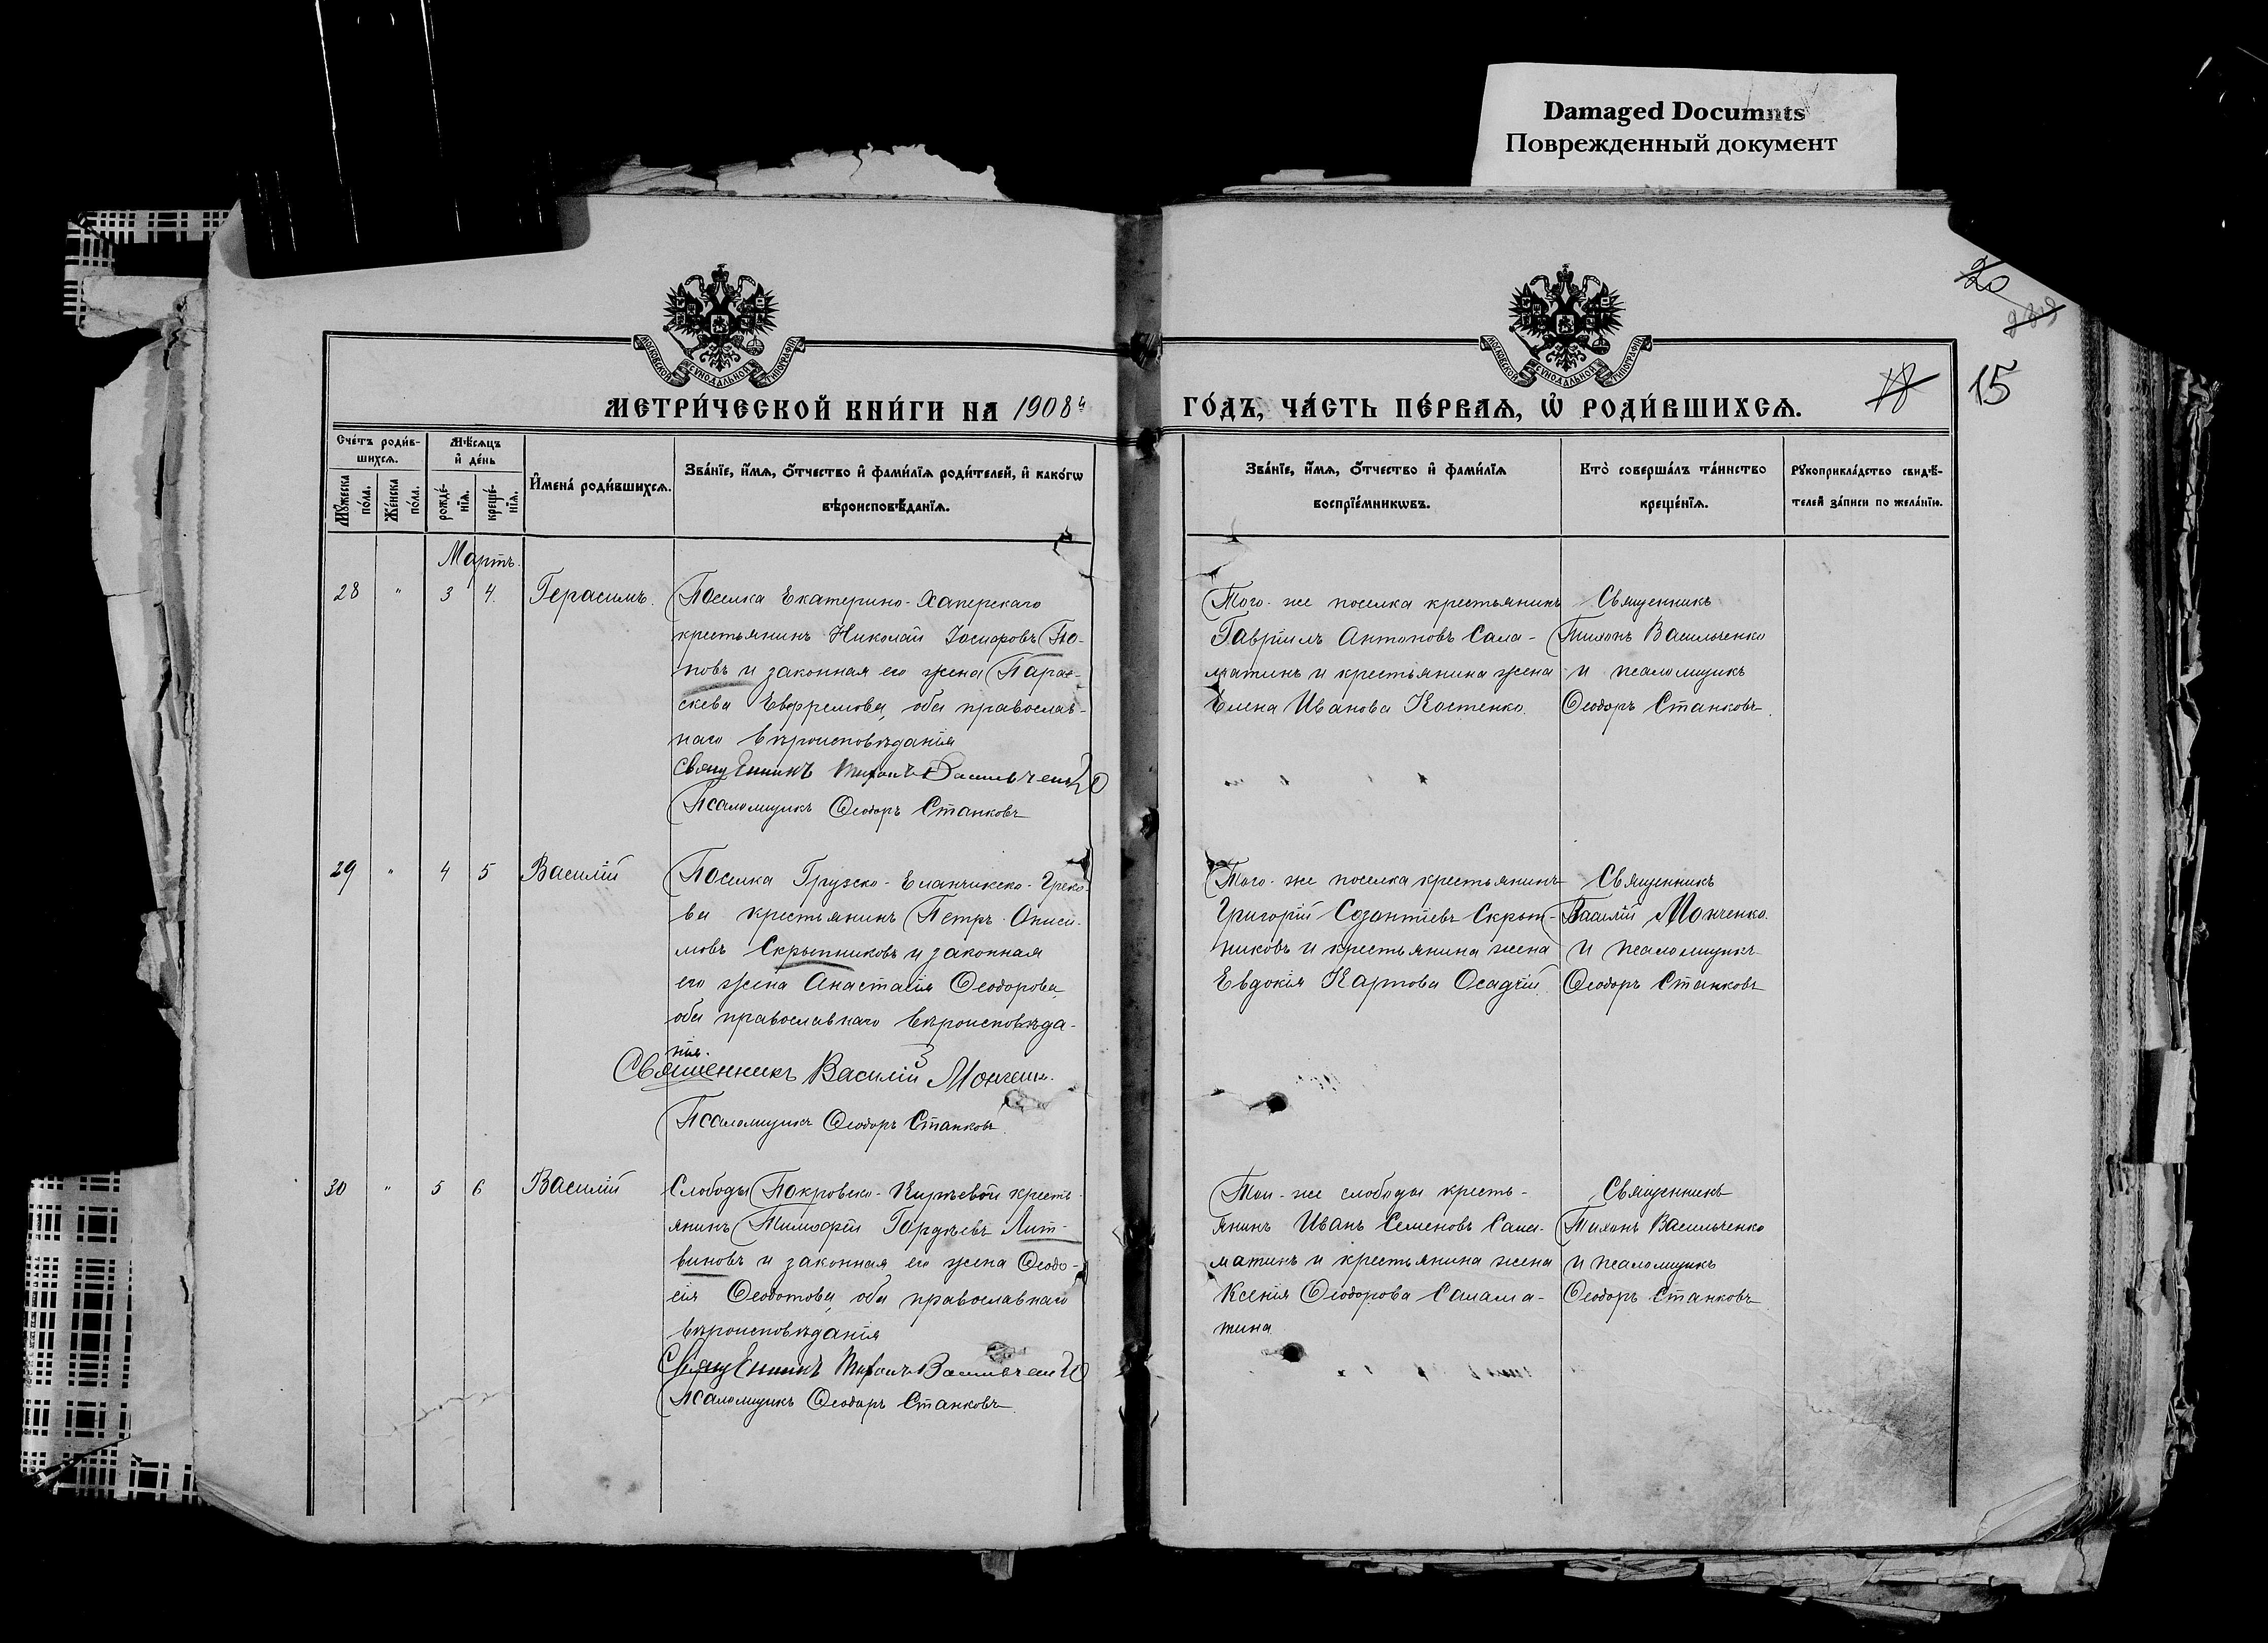 Damaged Documnts
Поврежденный документ
20
15
18
МОСКОВСКОЙ СѴНОДАЛЬНОЙ ТИПОГРАФІИ
МОСКОВСКОЙ СѴНОДАЛЬНОЙ ТИПОГРАФІИ
МЕТРИ́ЧЕСКОЙ КНИ́ГИ НА 1908й
ГО́ДЪ, ЧА́СТЬ ПЕ́РВАѦ, Ѡ҆ РОДИ́ВШИХСѦ.
Сче́тъ роди́в-
шихсѧ.
Мꙋ́жеска по́ла.
Же́нска по́ла.
Мѣ́сѧцъ
и҆ де́нь
рожде́-
нїѧ.
креще́-
нїѧ.
И҆мена̀ роди́вшихсѧ.
Зва́нїе, и҆́мѧ, ѻ҆́тчество и҆ фами́лїѧ роди́телей, и҆ како́гѡ
вѣроисповѣ́данїѧ.
Зва́нїе, и҆́мѧ, ѻ҆́тчество и҆ фами́лїѧ
воспрїе́мникѡвъ.
Кто̀ соверша́лъ та́инство
креще́нїѧ.
Рꙋкоприкла́дство свидѣ́-
телей за́писи по жела́нїю.
Мартъ.
28 " 3 4. Герасимъ.
Поселка Екатерино-Хаперскаго
крестьянинъ Николай Іосифовъ По-
повъ и законная его жена Парас-
кева Евфремова, оба православ-
наго вѣроисповѣданія
Священникъ Тихонъ Васильченко
Псаломщикъ Ѳеодоръ Станковъ
Того-же поселка крестьянинъ
Гавріилъ Антоновъ Сала-
матинъ и крестьянина жена
Елена Иванова Костенко.
Священникъ
Тихонъ Васильченко
и псаломщикъ
Ѳеодоръ Станковъ.
29 " 4 5 Василій
Поселка Грузско-Еланчикско-Греко-
ва крестьянинъ Петръ Ониси-
мовъ Скрыпниковъ и законная
его жена Анастасія Ѳеодорова,
оба православнаго вѣроисповѣда-
нія.
Священникъ Василій Мончен..
Псаломщикъ Ѳеодоръ Станковъ.
Того-же поселка крестьянинъ
Григорій Созонтіевъ Скрып-
никовъ и крестьянина жена
Евдокія Карпова Осадчій.
Священникъ
Василій Монченко.
и псаломщикъ
Ѳеодоръ Станковъ
30 " 5 6 Василій
Слободы Покровско-Кирѣевой кресть-
янинъ Тимофей Гордѣевъ Лит-
виновъ и законная его жена Ѳеодо-
сія Ѳеодотова, оба православнаго
вѣроисповѣданія
Священникъ Тихонъ Васильченко
Псаломщикъ Ѳеодоръ Станковъ.
Той-же слободы кресть-
янинъ Иванъ Семеновъ Сала-
матинъ и крестьянина жена
Ксенія Ѳеодорова Салама-
тина
Священникъ
Тихонъ Васильченко
и псаломщикъ
Ѳеодоръ Станковъ